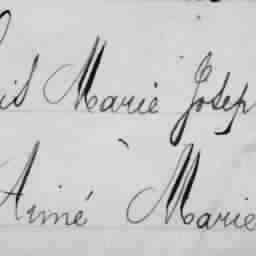 is Marie Josep
Aimé Marie